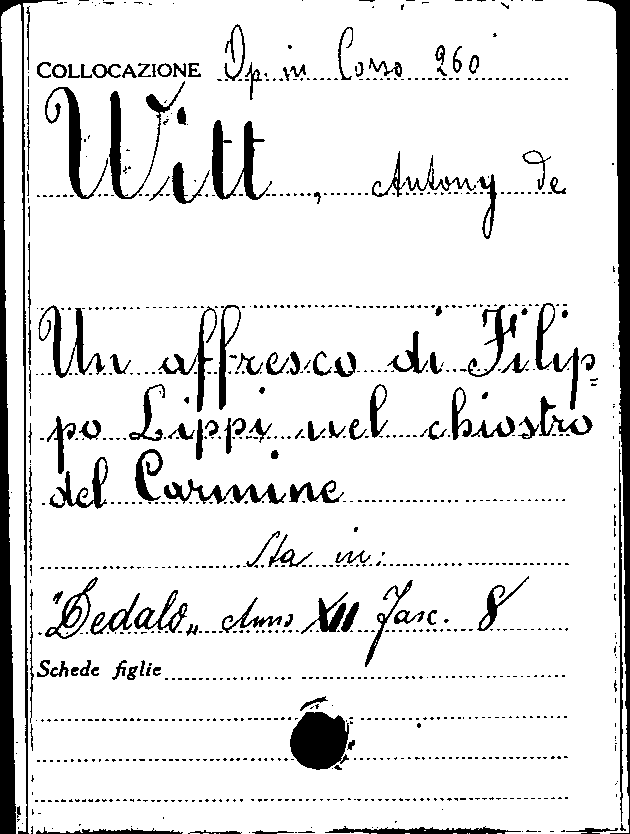 COLLOCAZIONE Op. in Corso 260
Witt, Antony de
Un affresco di Filip=
po Lippi nel chiostro
del Carmine
Sta in:
"Dedalo„ Anno XII Fasc. 8
Schede figlie